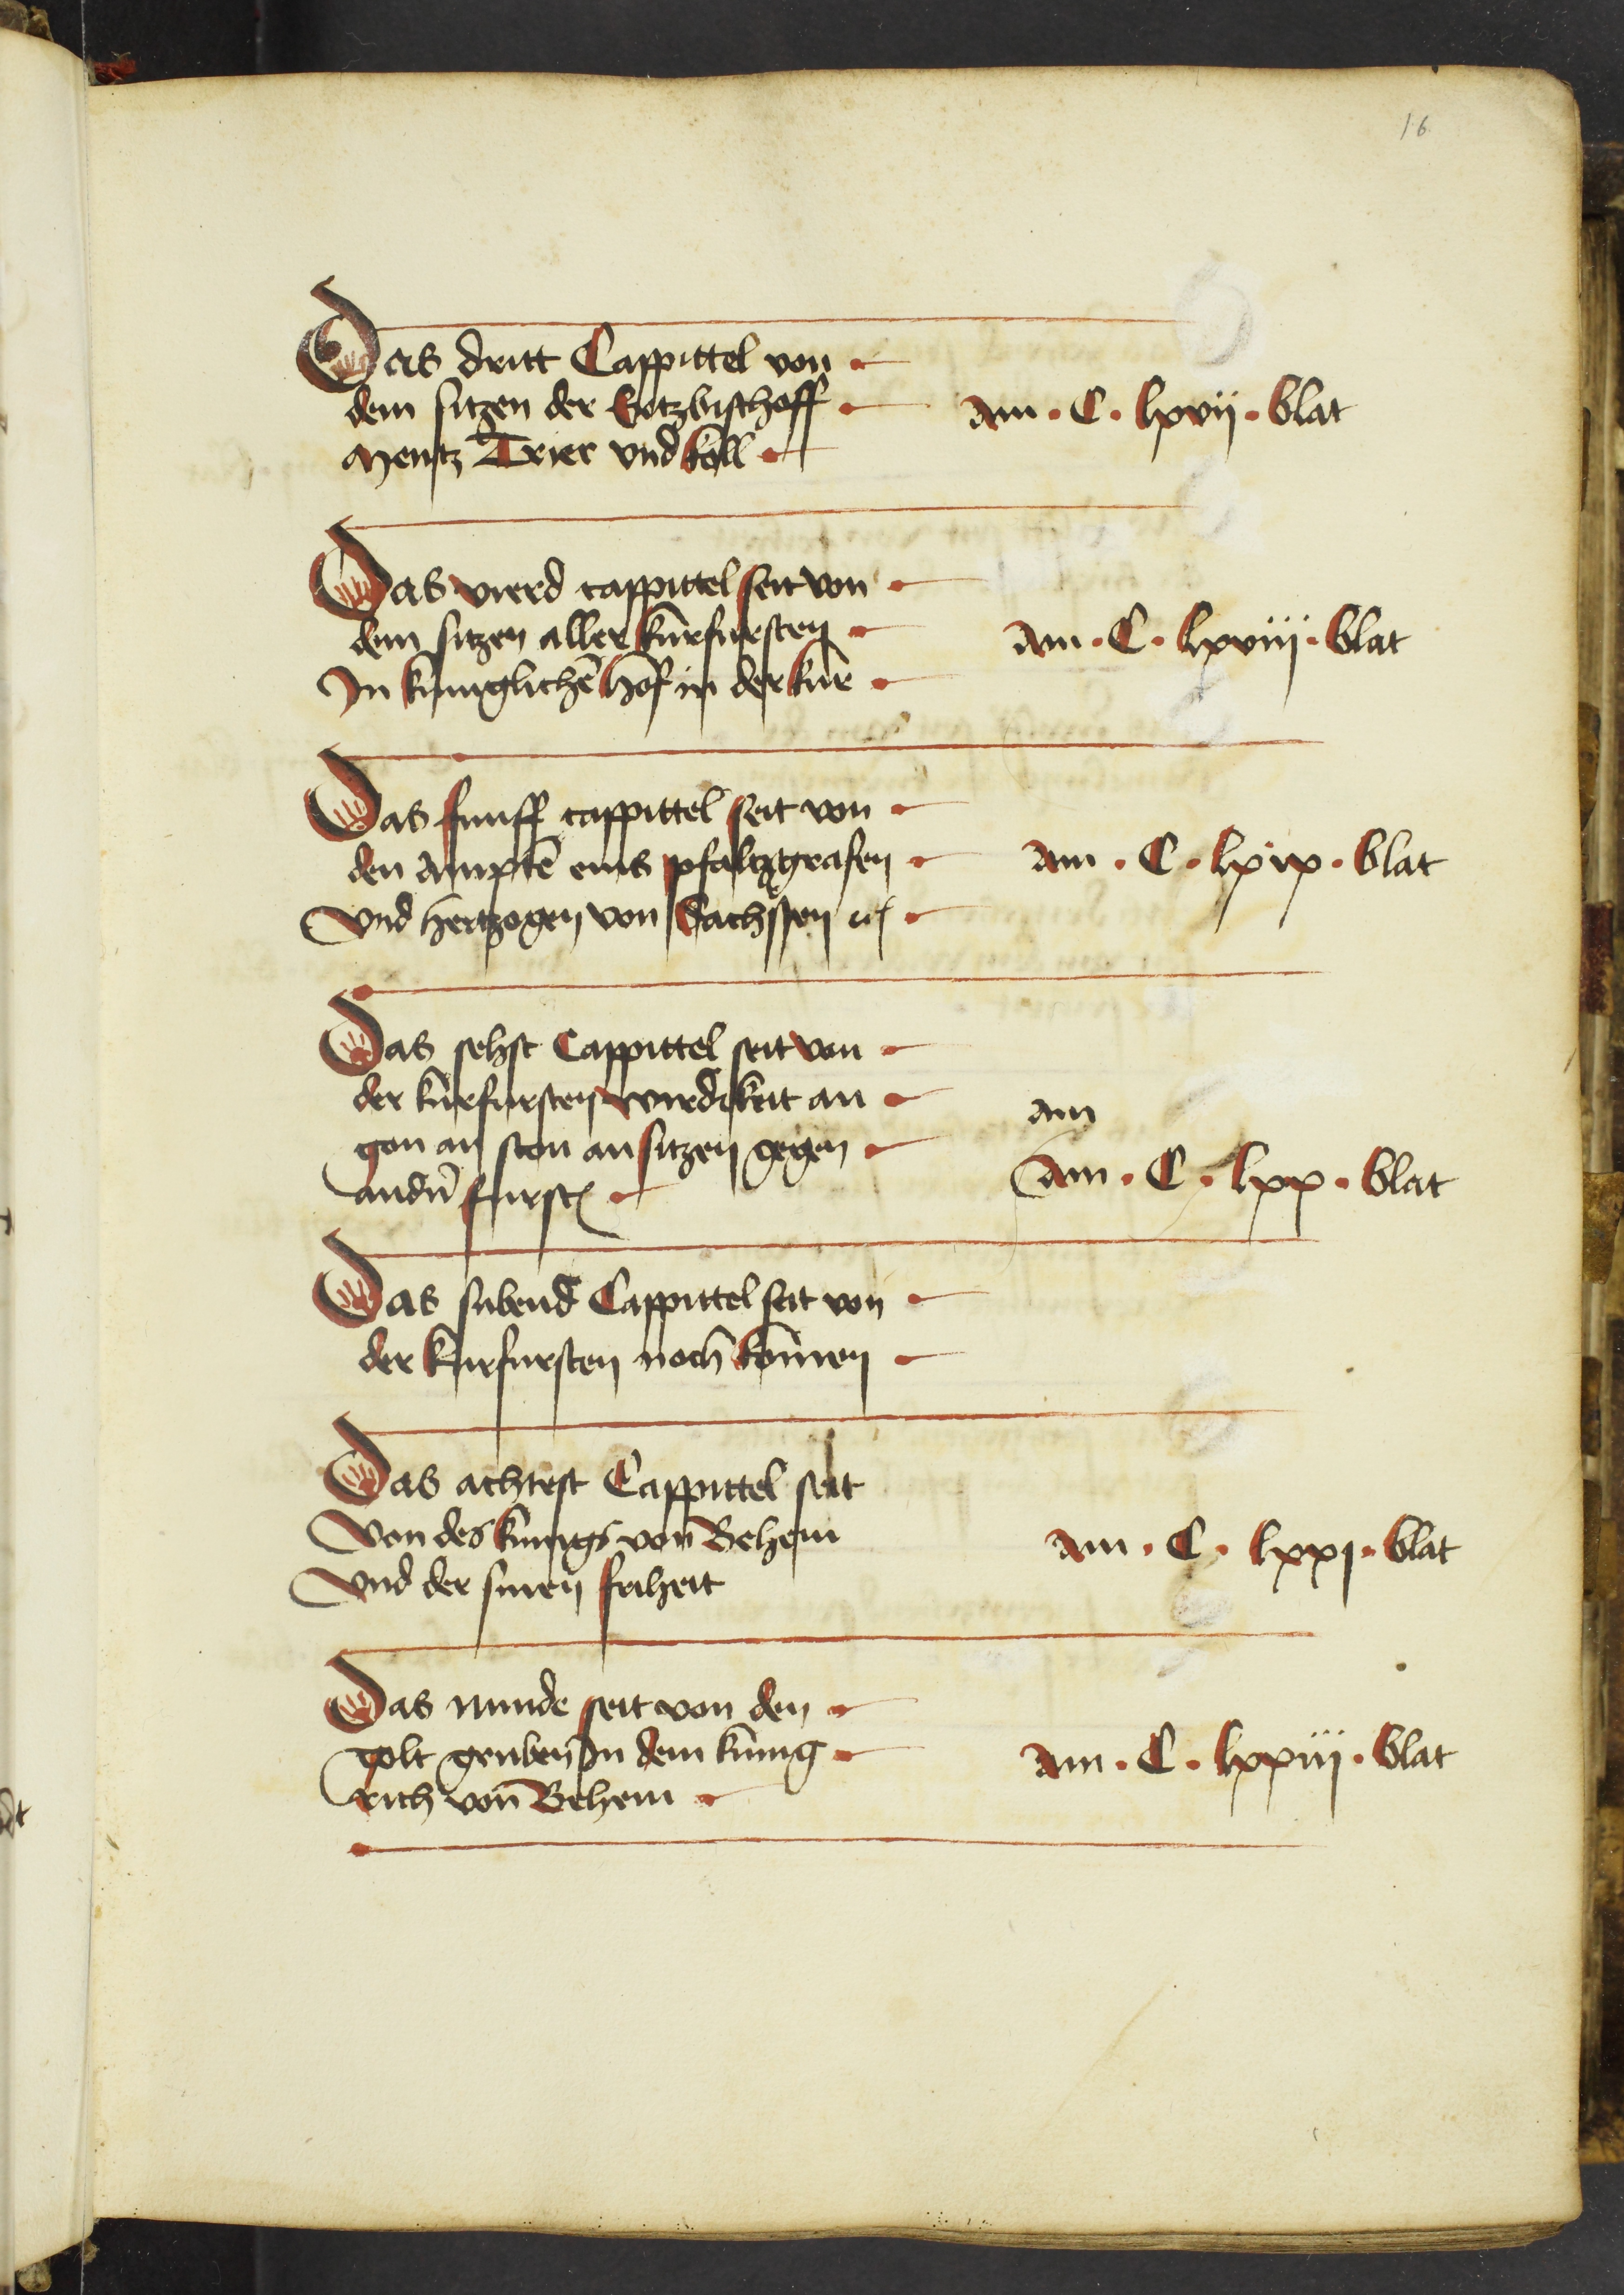 16
Das dritt Cappittel von
dem sitzen der Ertzbischoff
Mentz Trier vnd köll
Am · C · lxvij · blat
Das vierd cappittel seit von
dem sitzen aller kurfursten
Jn kuniglichē hof in der kur
Am · C · lxviij · blat
Das funff cappittel seit von
den Amptē eins pfaltzgrafen
Vnd hertzogen von Sachssen
Am · C · lxix · blat
Das sehst Cappittel seit von
der kurfursten wirdikeit an
gon an ston an sitzen gegen
andn̄ furstē
am
Am · C · lxx · blat
Das subend Cappittel seit von
der kurfursten noch komen
Das achtest Cappittel seit
Von des kunigs von Behem
Vnd der sinen friheit
Am · C · lxxj · blat
Das nunde seit von den
golt gruben Jn dem kunig
rich von Behem
Am · C · lxxiij · blat